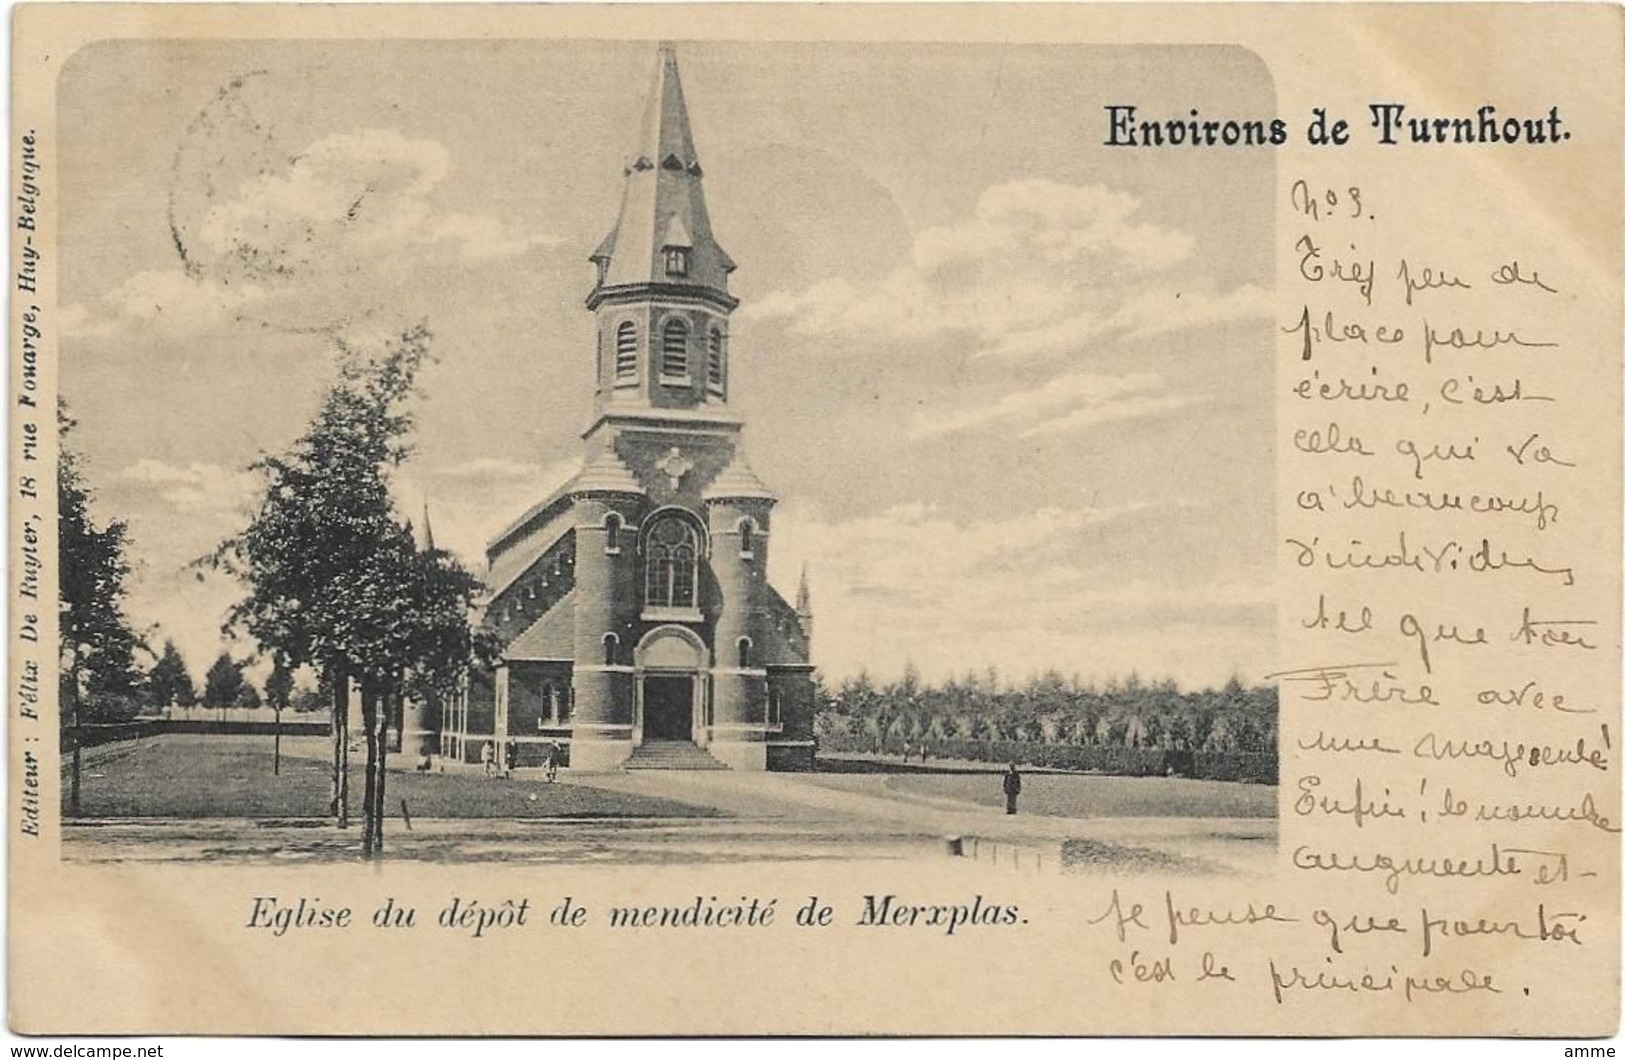 Environs de Turnhout.
No 3.
Très peu de
place pour
écrire, c'est
cela qui va
à beaucoup
d'individus
tel que ton
Frère avec
une
Enfin! le nombre
augmente et
je pense que pour toi
c'est le principale.
Eglise du dépôt de mendicité de Merxplas.
Editeur: Félix De Ruyter, 18 rue Fouarge, Huy-Belgique.
www.delcampe.net
amme